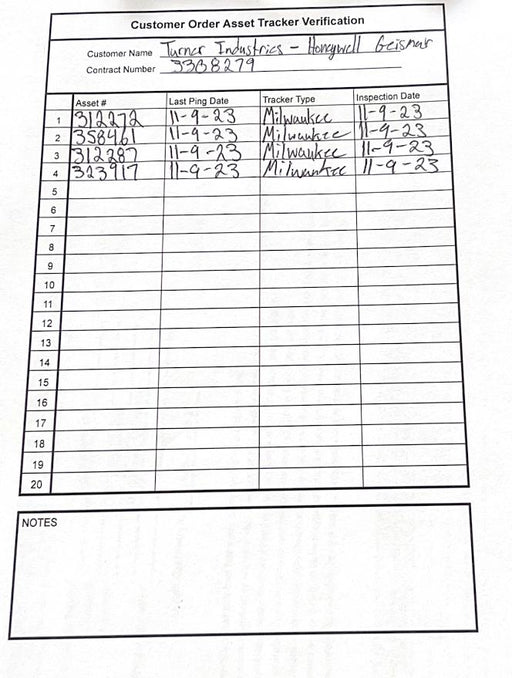 Customer Order Asset Tracker Verification
Customer Name Turner Industries - Honeywell Geismar
Contract Number 3368279
Asset # Last Ping Date Tracker Type Inspection Date
1 312272 11-9-23 Milwaukee 11-9-23
2 358461 11-9-23 Milwaukee 11-9-23
3 312287 11-9-23 Milwaukee 11-9-23
4 323917 11-9-23 Milwaukee 11-9-23
5
6
7
8
9
10
11
12
13
14
15
16
17
18
19
20
NOTES